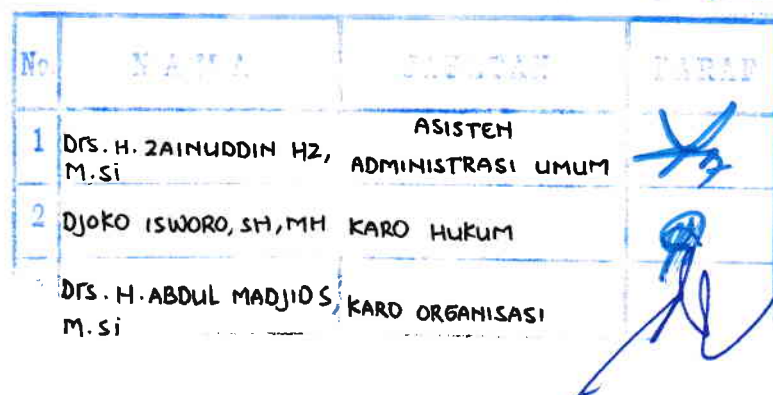 No. NAMA JABATAN PARAF
1 Drs. H. ZAINUDDIN HZ, M.si ASISTEN ADMINISTRASI UMUM
2 DJOKO ISWORO, SH, MH KARO HUKUM
Drs. H. ABDUL MADJID S, M.si KARO ORGANISASI